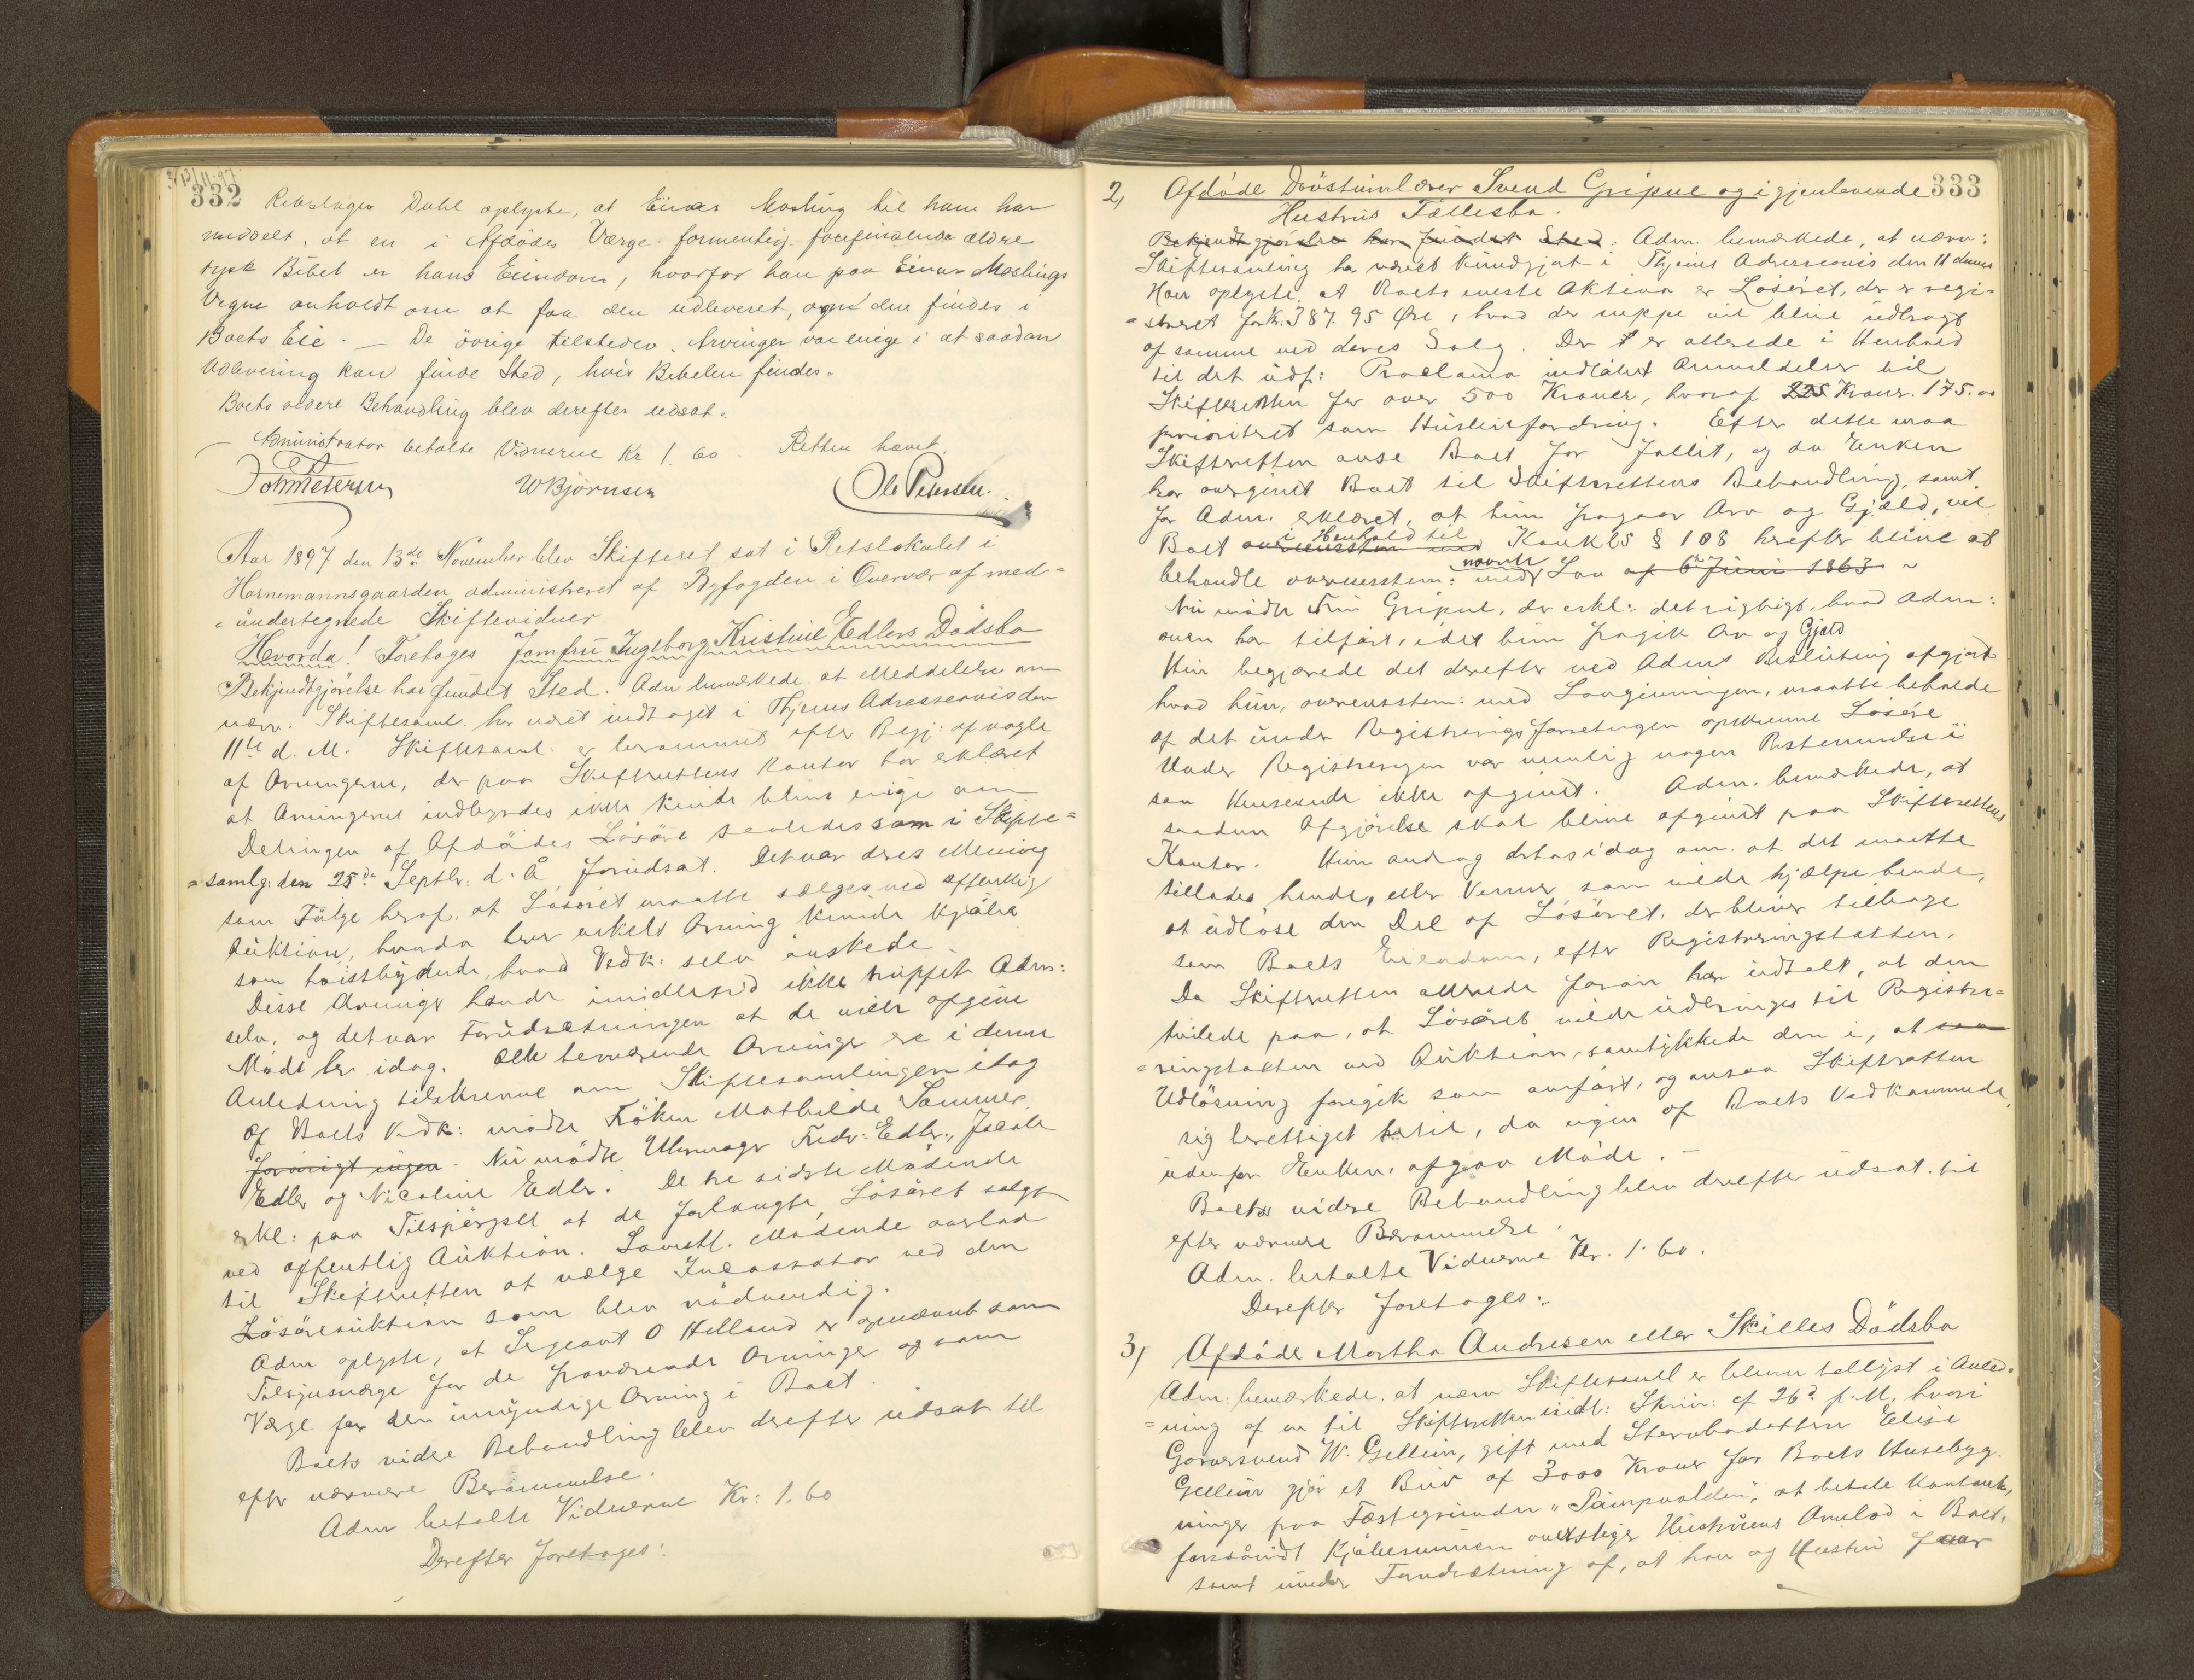 332
Rebslager Dahl oplyste, at Einar Mosling til ham har
meddelt, at en i Afdødes Værge formentlig forefindende ældre
tysk Bibel er hans Eiendom, hvorfor han paa Einar Moslings
Vegne anholdt om at faa den udleveret, om den findes i
Boets Eie. — De øvrige tilstedev. Arvinger var enige i at saadan
Udlevering kan finde Sted, hvis Bibelen findes.
Boets videre Behandling blev derefter udsat.
Administrator betalte Vidnerne Kr 1.60. Retten hævet.
WBjørnsen Ole Petersen.
Aar 1897 den 13de November blev Skifteret sat i Retslokalet i
Hornemannsgaarden administreret af Byfogden i Overvær af med-
=undertegnede Skiftevidner
Hvorda! Foretages Jomfru Ingeborg Kristine Edlers Dødsbo
Bekjendtgjørelse har fundet Sted. Adm bemærkede at Meddelelse om
nærv. Skiftesaml. har været indtaget i Thjems Adresseavis den
11te d. M. Skiftesaml: er berammet efter Begj: af nogle
af Arvingerne, der paa Skifterettens Kontor har erklæret
at Arvingerne indbyrdes ikke kunde blive enige om
Delingen af Afdødes Løsøre saaledes som i Skifte=
=samlg: den 25de Septbr. d. Å forudsat. Det var deres Mening
som Følge heraf, at Løsøret maatte sælges ved offentlig
Auktion, hvorda hver enkelt Arving kunde kjøbe
som høistbydende, hvad Vedk: selv ønskede.
Disse Arvinger havde imidlertid ikke truffet Adm:
selv, og det var Forudsætningen at de vilde afgive
Møde her idag. Alle herværende Arvinger ere i denne
Anledning tilskrevne om Skiftesamlingen idag
Af Boets Vedk: mødte Frøken Mathilde Sommer
forøvrigt ingen. Nu mødte Uhrmager Fredr: Edler, Jacob
Edler og Nicoline Edler. De tre sidste Mødende
erkl: paa Tilspørgsel at de forlangte Løsøret solgt
ved offentlig Auktion. Samtl. Mødende overlod
til Skifteretten at vælge Incassator ved den
Løsøreauktion som blev nødvendig.
Adm oplyste, at Sergeant O Helland er opnævnt som
Tilsynsværge for de fraværende Arvinger og som
Værge for den umyndige Arving i Boet.
Boets videre Behandling blev derefter udsat til
efter nærmere Berammelse.
Adm betalte Vidnerne Kr: 1.60
Derefter foretages:
333
2, Afdøde Svend Gripne og igjenlevende
Hustrus Fællesbo.
Bekjendtgjørelse har fundet Sted. Adm. bemærkede, at nærv:
Skiftesamling har været kundgjort i Thjems Adresseavis den 11 dennes
Han oplyste, at Boets eneste Aktiva er Løsøret, der er regi-
=streret for Kr. 387.95 Øre, hvad der neppe vil blive udbragt
af samme ved deres Salg. Der er allerede i Henhold
til det udf: Proclama indløbet Anmeldelser til
Skifteretten for over 500 Kroner, hvoraf 225 Kroner 175.00
prioriteret som Husleiefordring. Efter dette maa
Skifteretten anse Boet for fallit, og da Enken
har overgivet Boet til Skifterettens Behandling, samt
for Adm. erklæret, at hun fragaar Arv og Gjæld, vil
Boet overensstem med i Henhold til KonkLs § 108 herefter blive at
behandle overensstem: med nævnte Lov af 6te Juni 1863 ~
Nu mødte Fru Gripne, der erkl: det rigtigt, hvad Adm:
oven har tilført, idet hun fragik Arv og Gjæld
Hun begjærede det derefter ved Adms Beslutning afgjort
hvad hun, overensstem: med Lovgivningen, maatte beholde
af det under Registreringsforretningen opskrevne Løsøre
Under Registreringen var nemlig nogen Bestemmelse i
saa Henseende ikke afgivet. Adm. bemærkede, at
saadan Afgjørelse skal blive afgivet paa Skifterettens
Kontor. Hun androg derhos idag om, at det maatte
tillades hende, eller Venner som vilde hjælpe hende,
at udløse den Del af Løsøret, der bliver tilbage
som Boets Eiendom, efter Registreringstakten.
Da Skifteretten allerede foran har udtalt, at den
tvilede paa, at Løsøret vilde udbringes til Registre=
=ringstakten ved Auktion, samtykkede den i, at saa
Udløsning foregik som anført, og ansaa Skifteretten
sig berettiget hertil, da ingen af Boets Vedkommende,
udenfor Enken, afgav Møde. —
Boets videre Behandling blev derefter udsat til
efter nærmere Berammelse.
Adm. betalte Vidnerne Kr. 1.60.
Derefter foretages:
3, Afdøde Martha Andresen eller Skilles Dødsbo
Adm: bemærkede, at nærv Skiftesaml er bleven tillyst i Anled-
=ning af en til Skifteretten indl: Skriv: af 26de f. M, hvori
Garversvend W. Gellein, gift med Stervbodatteren Elise
Gellein gjør et Bud af 3000 Kroner for Boets Husebyg-
ninger paa Fæstegrunden "Pampvolden", at betale kontant,
forsåvidt Kjøbesummen overstiger Hustruens Arvelod i Boet,
samt under Forudsætning af, at han og Hustru faar